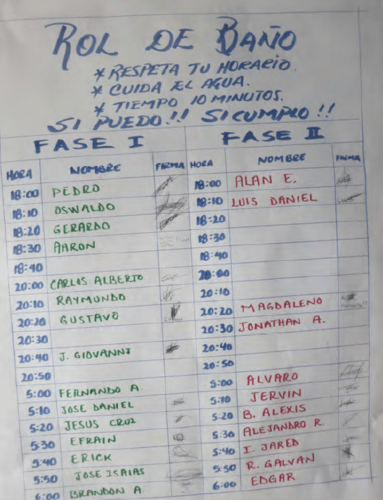 ROL DE BAÑO
* RESPETA TU HORARIO.
* CUIDA EL AGUA.
* TIEMPO 10 MINUTOS.
SI PUEDO!! SI CUMPLO!!
FASE I FASE II
HORA NOMBRE FIRMA HORA NOMBRE FIRMA
18:00 PEDRO 18:00 ALAN E.
18:10 OSWALDO 18:10 LUIS DANIEL
18:20 GERARDO 18:20
18:30 AARON 18:30
18:40 18:40
20:00 CARLOS ALBERTO 20:00
20:10 RAYMUNDO 20:10
20:20 GUSTAVO 20:20 MAGDALENO
20:30 20:30 JONATHAN A.
20:40 J. GIOVANNI 20:40
20:50 20:50
5:00 FERNANDO A. 5:00 ALVARO
5:10 JOSE DANIEL 5:10 JERVIN
5:20 JESUS CRUZ 5:20 B. ALEXIS
5:30 EFRAIN 5:30 ALEJANDRO R.
5:40 ERICK 5:40 I. JARED
5:50 JOSE ISAIAS 5:50 R. GALVAN
6:00 BRANDON A. 6:00 EDGAR